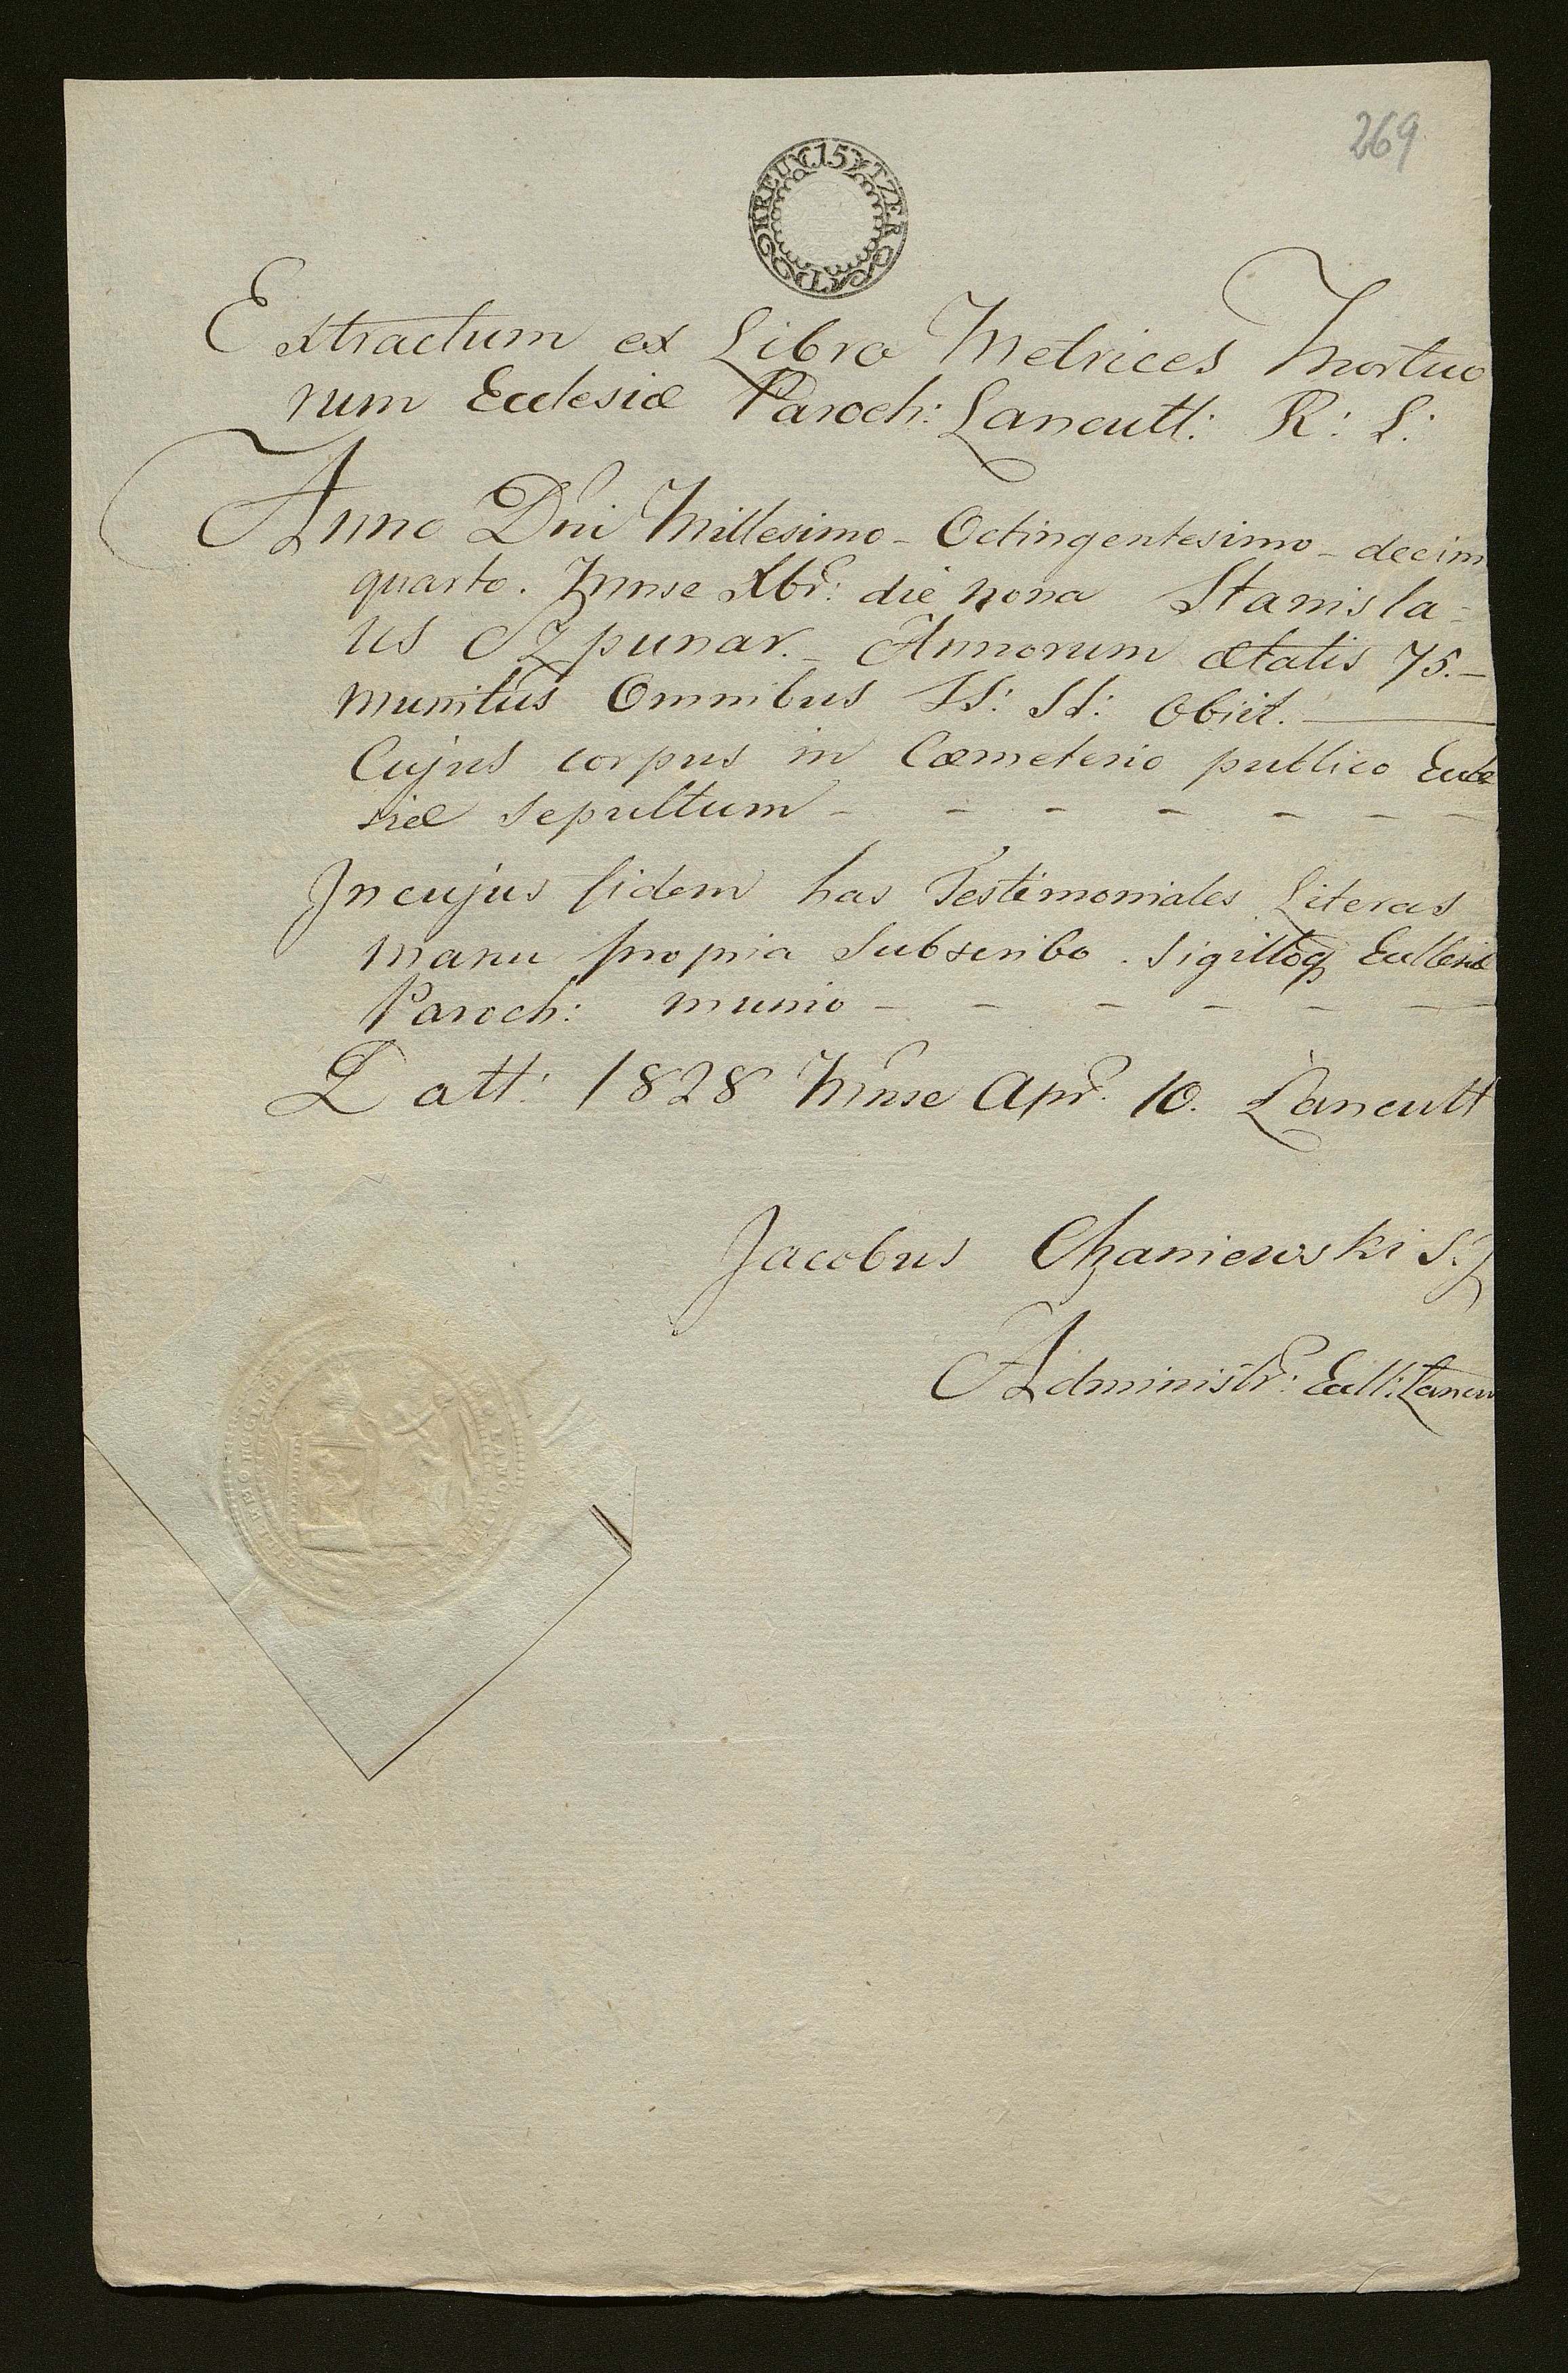 269
15 KREUTZER
Extractum ex Libro Metrices Mortuo
rum Ecclesiæ Paroch: Lancutt: R: L:
Anno Dni Millesimo - Octingentesimo - decim
quarto. Mnse Xbr: die nona Stanisla-
us Szpunar. - Annorum ætatis 75. -
munitus Omnibus SS: SS: obiit.
Cujus corpus in Cæmeterio publico Eccle
siæ sepultum - - - - - - -
In cujus fidem has Testimoniales Literas
manu propria Subscribo. Sigilloq Ecclesiæ
Paroch: munio - - - - - -
Datt: 1828 Mnse Apr. 10. Lancutt
Jacobus Chaniewski
Administr: Eccll: Lancu